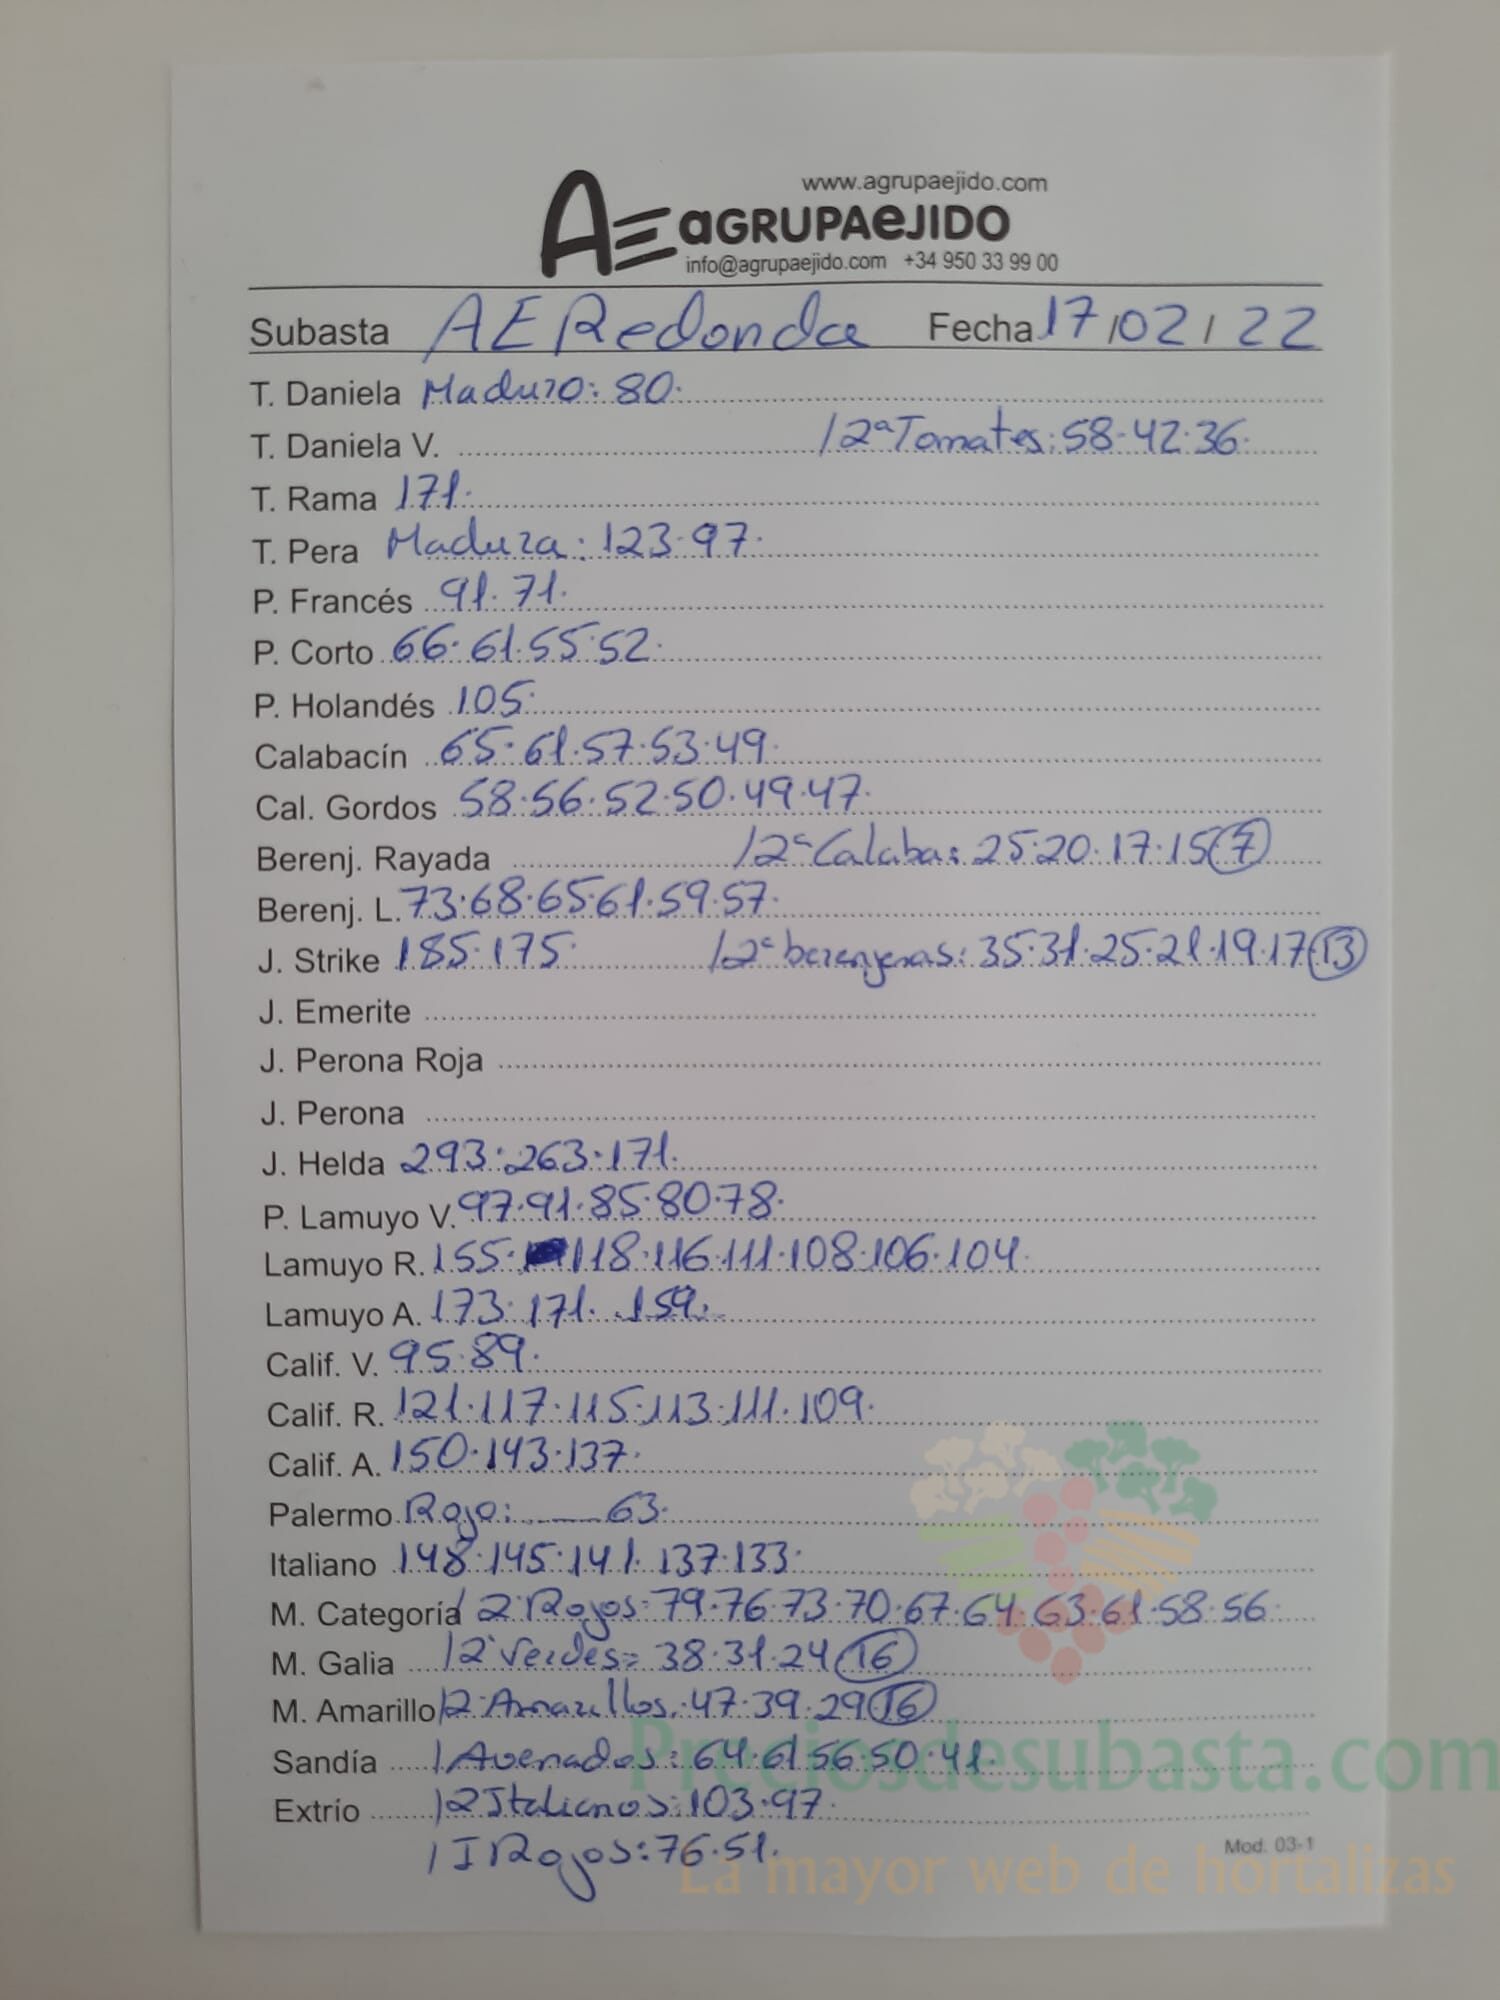 www.agrupaejido.com
AE aGRUPAeJIDO
info@agrupaejido.com +34 950 33 99 00
Subasta AE Redonda Fecha 17/02/22
T. Daniela Maduro: 80.
T. Daniela V. /2ª Tomates: 58.42.36.
T. Rama 171.
T. Pera Madura: 123.97.
P. Francés 91.71.
P. Corto 66.61.55.52.
P. Holandés 105.
Calabacín 65.61.57.53.49.
Cal. Gordos 58.56.52.50.49.47.
Berenj. Rayada /2ª Calaba: 25.20.17.15 (7)
Berenj. L. 73.68.65.61.59.57.
J. Strike 185.175. /2ª berenjenas: 35.31.25.21.19.17 (13)
J. Emerite
J. Perona Roja
J. Perona
J. Helda 293.263.171.
P. Lamuyo V. 97.91.85.80.78.
Lamuyo R. 155. 118.116.111.108.106.104.
Lamuyo A. 173.171.159.
Calif. V. 95.89.
Calif. R. 121.117.115.113.111.109.
Calif. A. 150.143.137.
Palermo Rojo: 63.
Italiano 148.145.141.137.133.
M. Categoría /2ª Rojos: 79.76.73.70.67.64.63.61.58.56.
M. Galia /2ª Verdes: 38.31.24 (16)
M. Amarillo /2ª Amarillos: 47.39.29 (16)
Sandía /Avenados: 64.61.56.50.41.
Extrío /2 Italianos: 103.97.
/I Rojos: 76.51.
Mod. 03-1
Preciosdesubasta.com
La mayor web de hortalizas